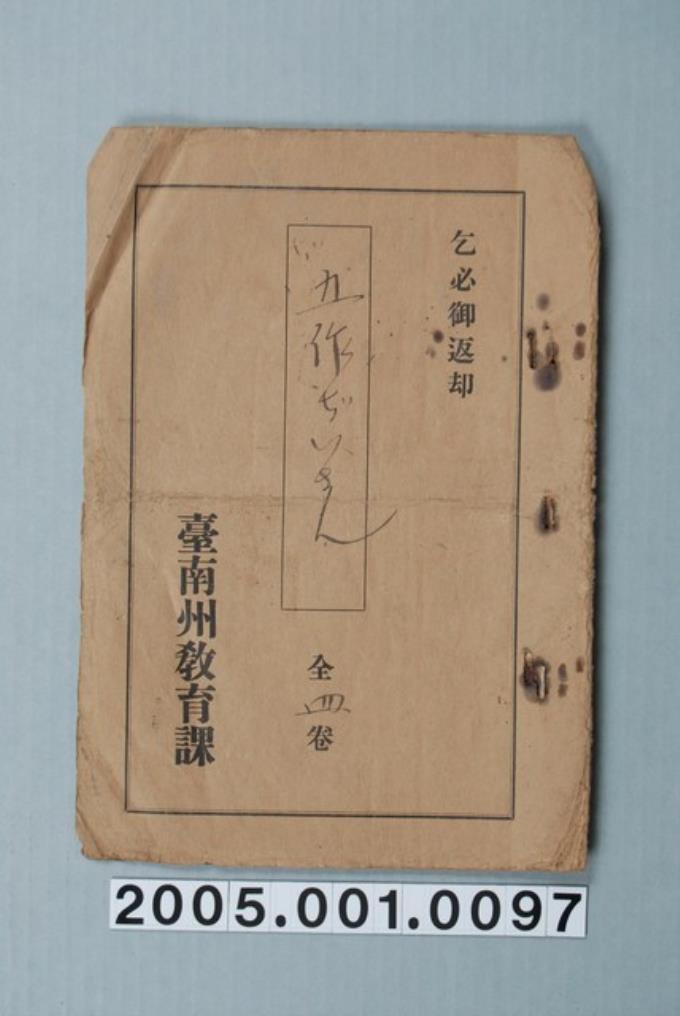 乞必御返却
五作ぢいさん
全四卷
臺南州教育課
2005.001.0097